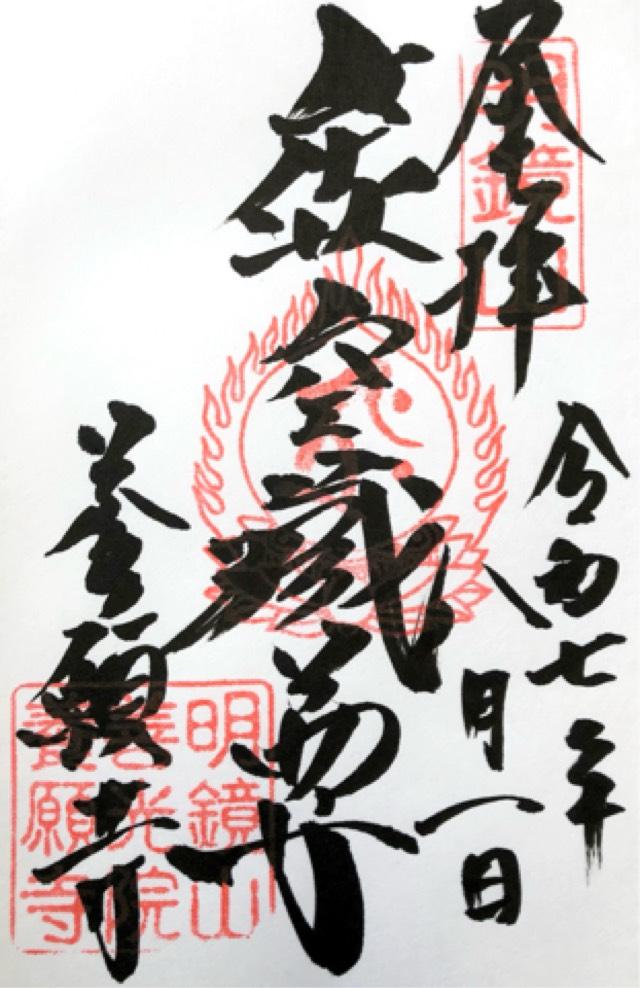 奉拝
明鏡山
令和七年
八月一日
虚空蔵尊
養願寺
明鏡山
善光院
養願寺